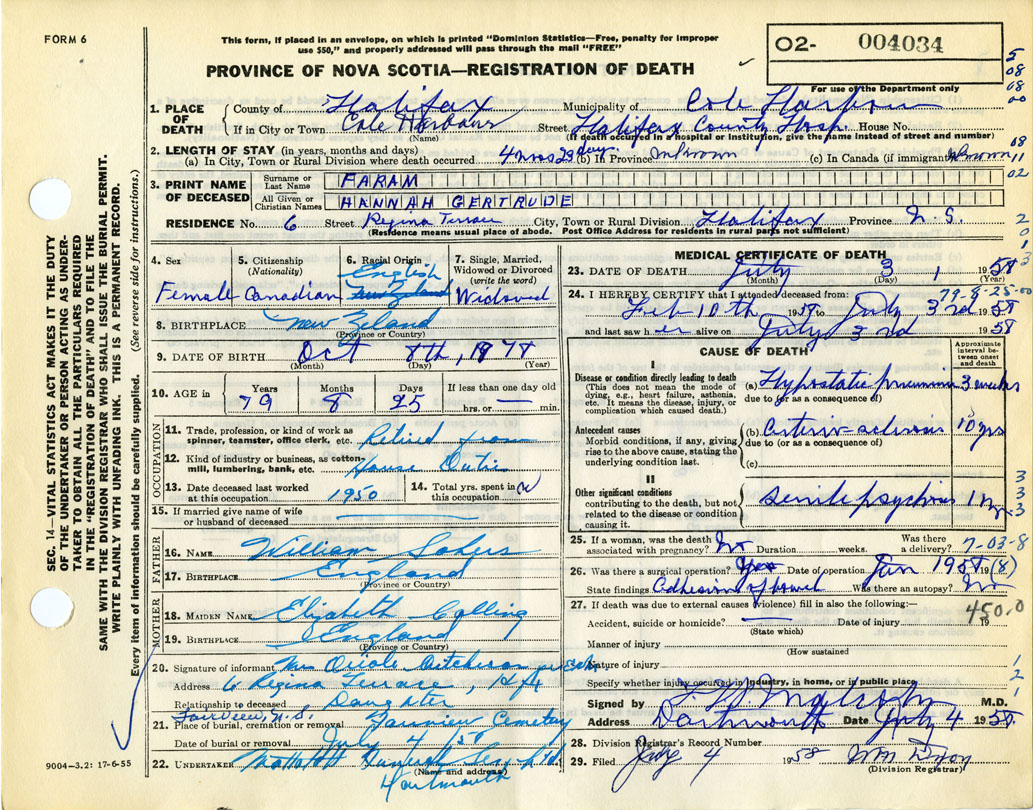 FORM 6
This form, if placed in an envelope, on which is printed "Dominion Statistics—Free, penalty for improper
use $50," and properly addressed will pass through the mail "FREE"
PROVINCE OF NOVA SCOTIA—REGISTRATION OF DEATH
02- 004034
For use of the Department only
5
08
08
00
1. PLACE OF DEATH
County of Halifax Municipality of Cole Harbour
If in City or Town Cole Harbour Street Halifax County Hosp. House No.
(Name) (If death occurred in a hospital or institution, give the name instead of street and number)
2. LENGTH OF STAY (in years, months and days)
(a) In City, Town or Rural Division where death occurred 4 mos 23 days (b) In Province Unknown (c) In Canada (if immigrant) Unknown
08
11
02
3. PRINT NAME OF DECEASED
Surname or Last Name FARAM
All Given or Christian Names HANNAH GERTRUDE
RESIDENCE No. 6 Street Regina Terrace City, Town or Rural Division Halifax Province N.S.
(Residence means usual place of abode. Post Office Address for residents in rural parts not sufficient)
2
0
1
3
4. Sex Female
5. Citizenship (Nationality) Canadian
6. Racial Origin English
7. Single, Married, Widowed or Divorced (write the word) Widowed
8. BIRTHPLACE New Zeland
(Province or Country)
9. DATE OF BIRTH Oct 8th, 1878
(Month) (Day) (Year)
10. AGE in Years 79 Months 8 Days 25 If less than one day old
hrs. or — min.
OCCUPATION
11. Trade, profession, or kind of work as spinner, teamster, office clerk, etc. Retired from
12. Kind of industry or business, as cotton-mill, lumbering, bank, etc. House Dutie
13. Date deceased last worked at this occupation 1950
14. Total yrs. spent in this occupation
15. If married give name of wife or husband of deceased
FATHER
16. NAME William
17. BIRTHPLACE England
(Province or Country)
MOTHER
18. MAIDEN NAME Elizabeth Colling
19. BIRTHPLACE England
(Province or Country)
20. Signature of informant Mrs Oriole
Address 6 Regina Terrace, Hfx
Relationship to deceased Daughter
Fairview, N.S.
21. Place of burial, cremation or removal Fairview Cemetery
Date of burial or removal July 4 58
22. UNDERTAKER
(Name and address)
Dartmouth
MEDICAL CERTIFICATE OF DEATH
23. DATE OF DEATH July 3, 1958
(Month) (Day) (Year)
79-8-25-00
24. I HEREBY CERTIFY that I attended deceased from:
Feb 10th 1958 to July 3rd 1958
and last saw her alive on July 3rd 1958
CAUSE OF DEATH
Approximate interval between onset and death
I
Disease or condition directly leading to death
(This does not mean the mode of dying, e.g., heart failure, asthenia, etc. It means the disease, injury, or complication which caused death.)
(a) Hypostatic pneumonia 3 weeks
due to (or as a consequence of)
Antecedent causes
Morbid conditions, if any, giving rise to the above cause, stating the underlying condition last.
(b) Arterio-sclerosis 10 yrs
due to (or as a consequence of)
(c)
II
Other significant conditions
contributing to the death, but not related to the disease or condition causing it.
senile psychosis 1
3
3
3
25. If a woman, was the death associated with pregnancy? No Duration weeks. Was there a delivery? 7-03-8
26. Was there a surgical operation? Yes Date of operation Jan 1958 19 (8)
State findings Adhesion of bowel Was there an autopsy? No
27. If death was due to external causes (violence) fill in also the following:—
450.0
Accident, suicide or homicide? — Date of injury 19
(State which)
Manner of injury
(How sustained
Nature of injury
Specify whether injury occurred in industry, in home, or in public place
1
2
1
Signed by M.D.
Address Dartmouth Date July 4 1958.
28. Division Registrar's Record Number
29. Filed July 4 1958
(Division Registrar)
SEC. 14—VITAL STATISTICS ACT MAKES IT THE DUTY
OF THE UNDERTAKER OR PERSON ACTING AS UNDER-
TAKER TO OBTAIN ALL THE PARTICULARS REQUIRED
IN THE "REGISTRATION OF DEATH" AND TO FILE THE
SAME WITH THE DIVISION REGISTRAR WHO SHALL ISSUE THE BURIAL PERMIT.
WRITE PLAINLY WITH UNFADING INK. THIS IS A PERMANENT RECORD.
Every item of information should be carefully supplied. (See reverse side for instructions.)
9004—3.2: 17-6-55